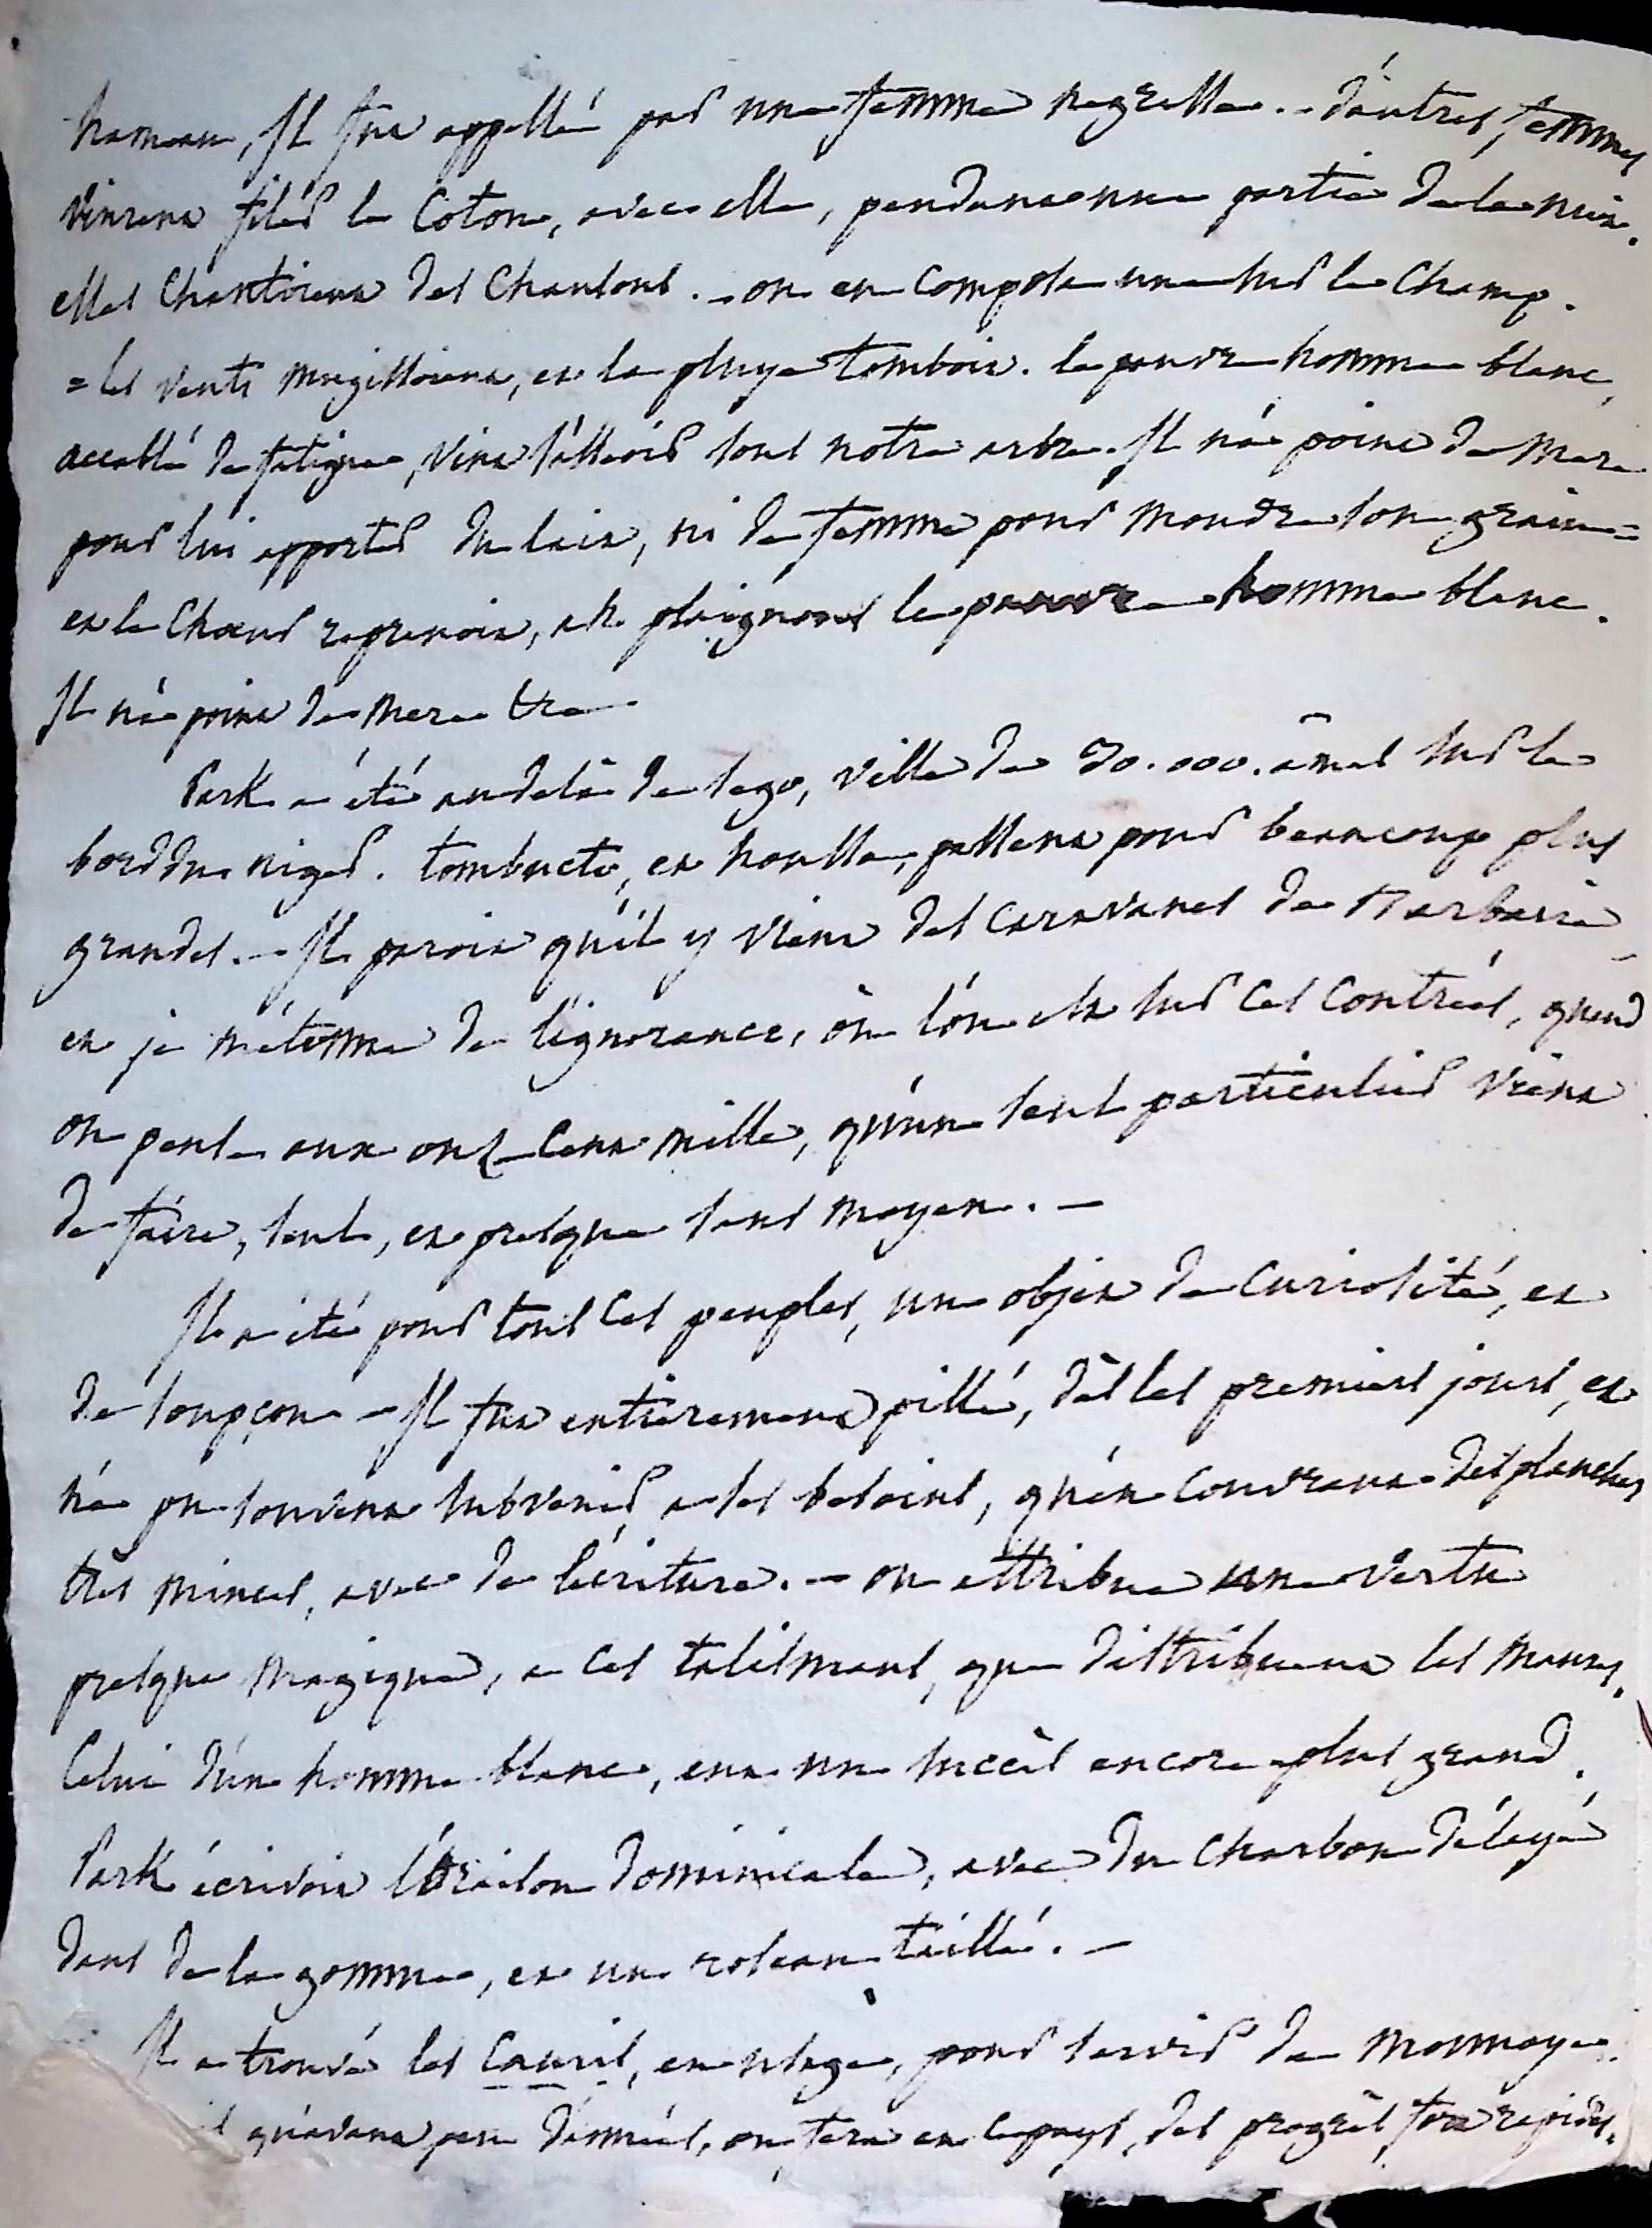 hameau, Il fut appellé par une femme negresse. - d'autres femmes
vinrent filer le Coton, avec elle, pendant une partie de la nuit.
elles Chantoient des Chansons. - on en Composa une sur le Champ.
= les vents mugissoient, et la pluye tomboit. le pauvre homme blanc,
accablé de fatigue, vint s'asseoir sous notre arbre. Il n'a point de mere
pour lui apporter du lait, ni de femme pour moudre son grain =
et le Choeur reprenoit, ah plaignons le pauvre homme blanc.
Il n'a point de mere &ra
Park a été au delà de sego, ville de 30.000. âmes sur le
bord du niger. tombuctu, et houssa, passent pour beaucoup plus
grandes. - Il paroit qu'il y vient des caravanes de Barbarie
et je m'étonne de l'ignorance, où l'on est sur ces contrées, quand
on pense aux onze cent mille, qu'un seul particulier vient
de faire, seul, et presque sans moyen. -
Il a été pour tous ces peuples, un objet de curiosité, et
de soupçon - Il fut entierement pillé, dès les premiers jours, et
n'a pu souvent subvenir a ses besoins, qu'en couvrant des planches
très minces, avec de l'écriture. - on attribue une vertu
presque magique, a ces talismans, que distribuent les maures.
Celui d'un homme blanc, eut un succès encore plus grand.
Park écrivoit l'Oraison dominicale, avec du charbon délayé
dans de la gomme, et un roseau taillé. -
Il a trouvé les Cauris, en usage, pour servir de monnoye.
qu'avant peu d'années, on fera en ce pays, des progrès fort rapides.